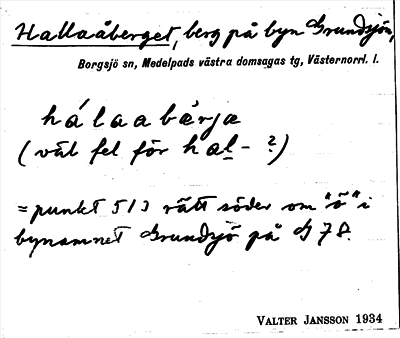 Hallaåberget, berg på byn Grundsjön,
Borgsjö sn, Medelpads västra domsagas tg, Västernorrl. l.
hálaabærja
(väl fel för hal- ?)
= punkt 513 rätt söder om "ö" i
bynamnet Grundsjö på G 78.
VALTER JANSSON 1934